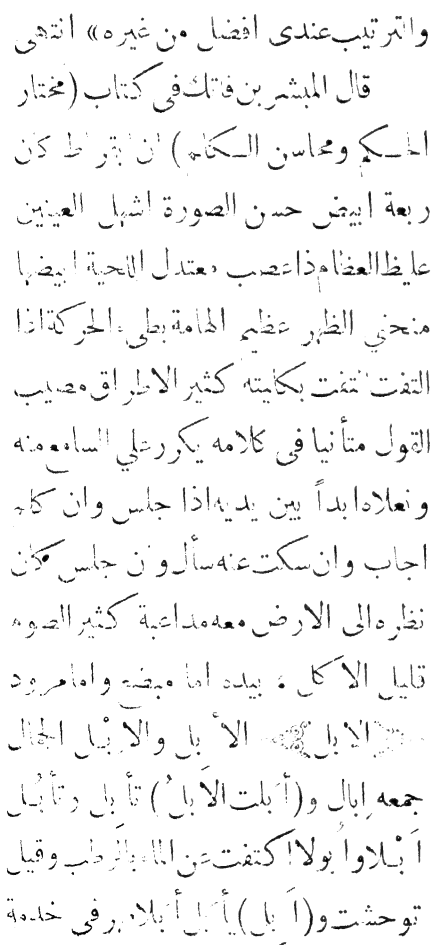 والترتيب عندى افضل من غيره» انتهى
قال المبشر بن فاتك في كتاب (مختار
الحكم ومحاسن الكلم) ان ابقراط كان
ربعة ابيض حسن الصورة اشهل العينين
غليظ العظام ذا عصب معتدل اللحية ابيضها
منحني الظهر عظيم الهامة بطيء الحركة اذا
التفت التفت بكليته كثير الاطراق مصيب
القول متأنيا في كلامه يكرر علي السامع منه
ونعلاه ابداً بين يديه اذا جلس وان كلم
اجاب وان سكت عنه سأل وان جلس كان
نظره الى الارض معه مداعبة كثير الصوم
قليل الاكل : بيده اما مبضع واما مرود
الابل الأبل والابْل الجمال
جمعه إبال و(أبلت الابلُ) تأبل وتأبُل
أبْلا وأبولا اكتفت عن الماء بالرطب وقيل
توحشت و(أبل) يأبل أبلا في خدمة